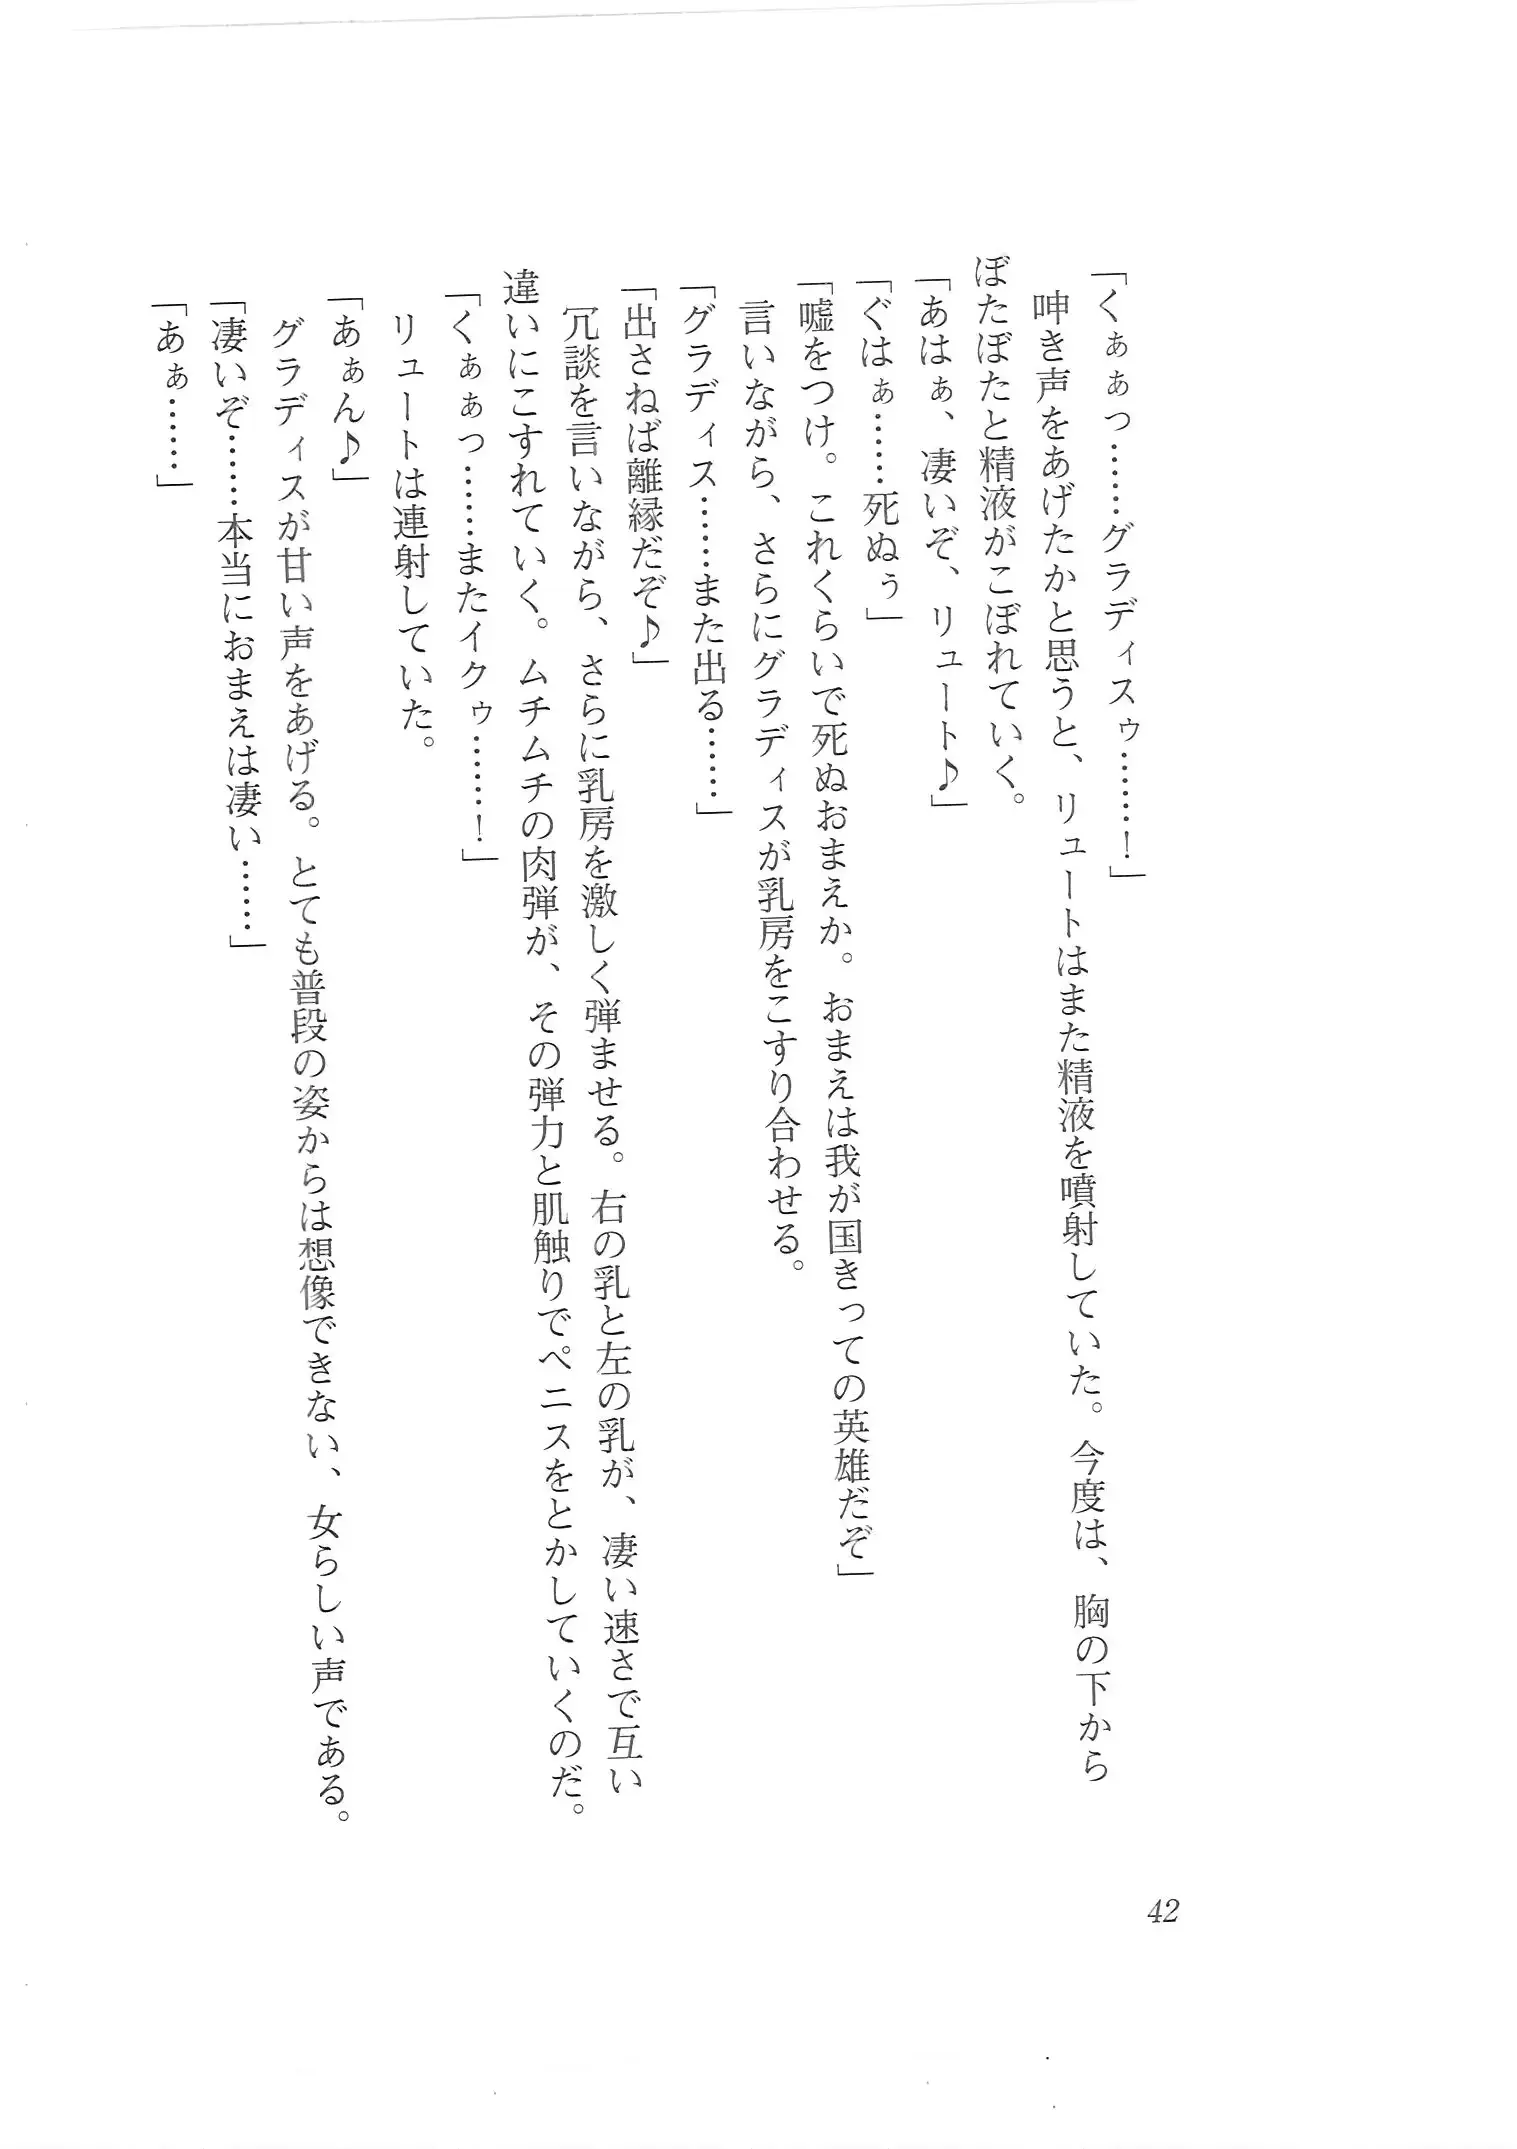 「くぁぁっ……グラディスゥ……！」
呻き声をあげたかと思うと、リュートはまた精液を噴射していた。今度は、胸の下から
ぼたぼたと精液がこぼれていく。
「あはぁ、凄いぞ、リュート♪」
「ぐはぁ……死ぬぅ」
「嘘をつけ。これくらいで死ぬおまえか。おまえは我が国きっての英雄だぞ」
言いながら、さらにグラディスが乳房をこすり合わせる。
「グラディス……また出る……」
「出さねば離縁だぞ♪」
冗談を言いながら、さらに乳房を激しく弾ませる。右の乳と左の乳が、凄い速さで互い
違いにこすれていく。ムチムチの肉弾が、その弾力と肌触りでペニスをとかしていくのだ。
「くぁぁっ……またイクゥ……！」
リュートは連射していた。
「あぁん♪」
グラディスが甘い声をあげる。とても普段の姿からは想像できない、女らしい声である。
「凄いぞ……本当におまえは凄い……」
「あぁ……」
42